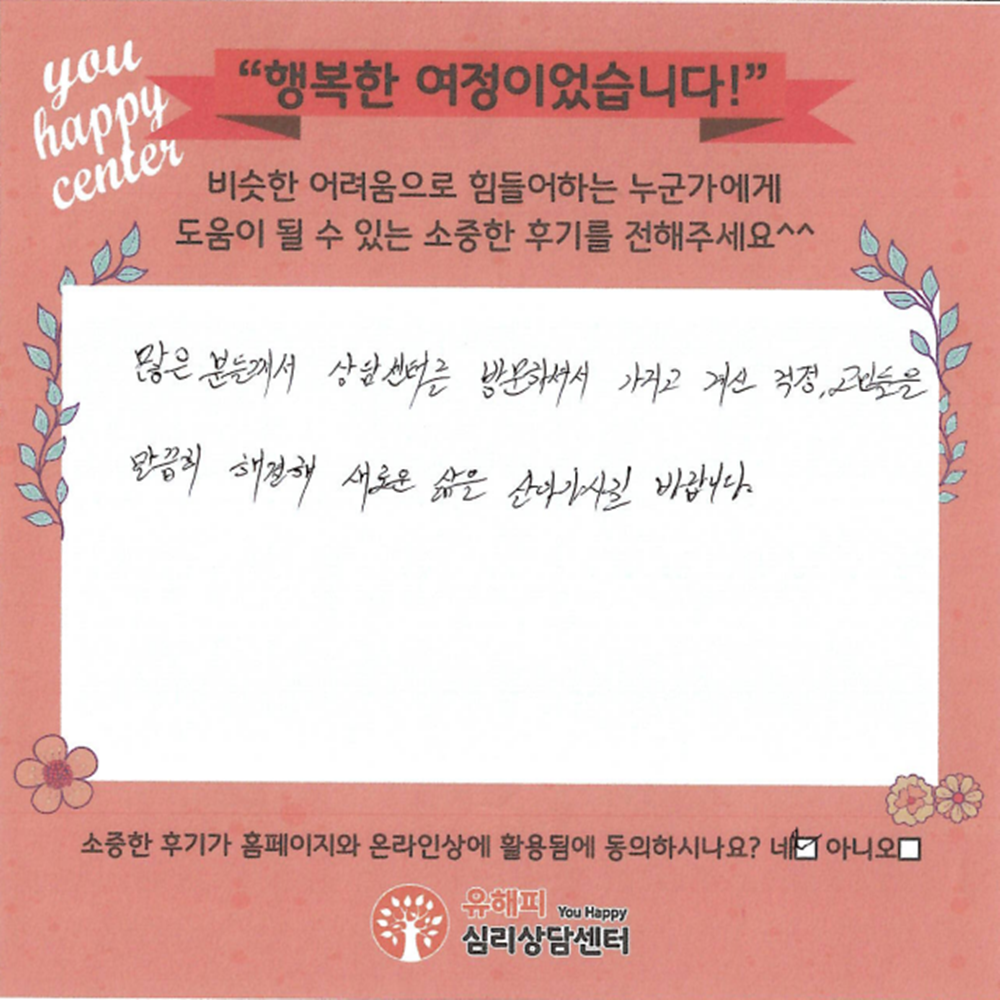 you
happy
center
“행복한 여정이었습니다!”
비슷한 어려움으로 힘들어하는 누군가에게
도움이 될 수 있는 소중한 후기를 전해주세요^^
많은 분들께서 상담센터를 방문하셔서 가지고 계신 걱정, 고민들을
말끔히 해결해 새로운 삶을 살아가시길 바랍니다.
소중한 후기가 홈페이지와 온라인상에 활용됨에 동의하시나요? 네☑ 아니오☐
유해피 You Happy
심리상담센터